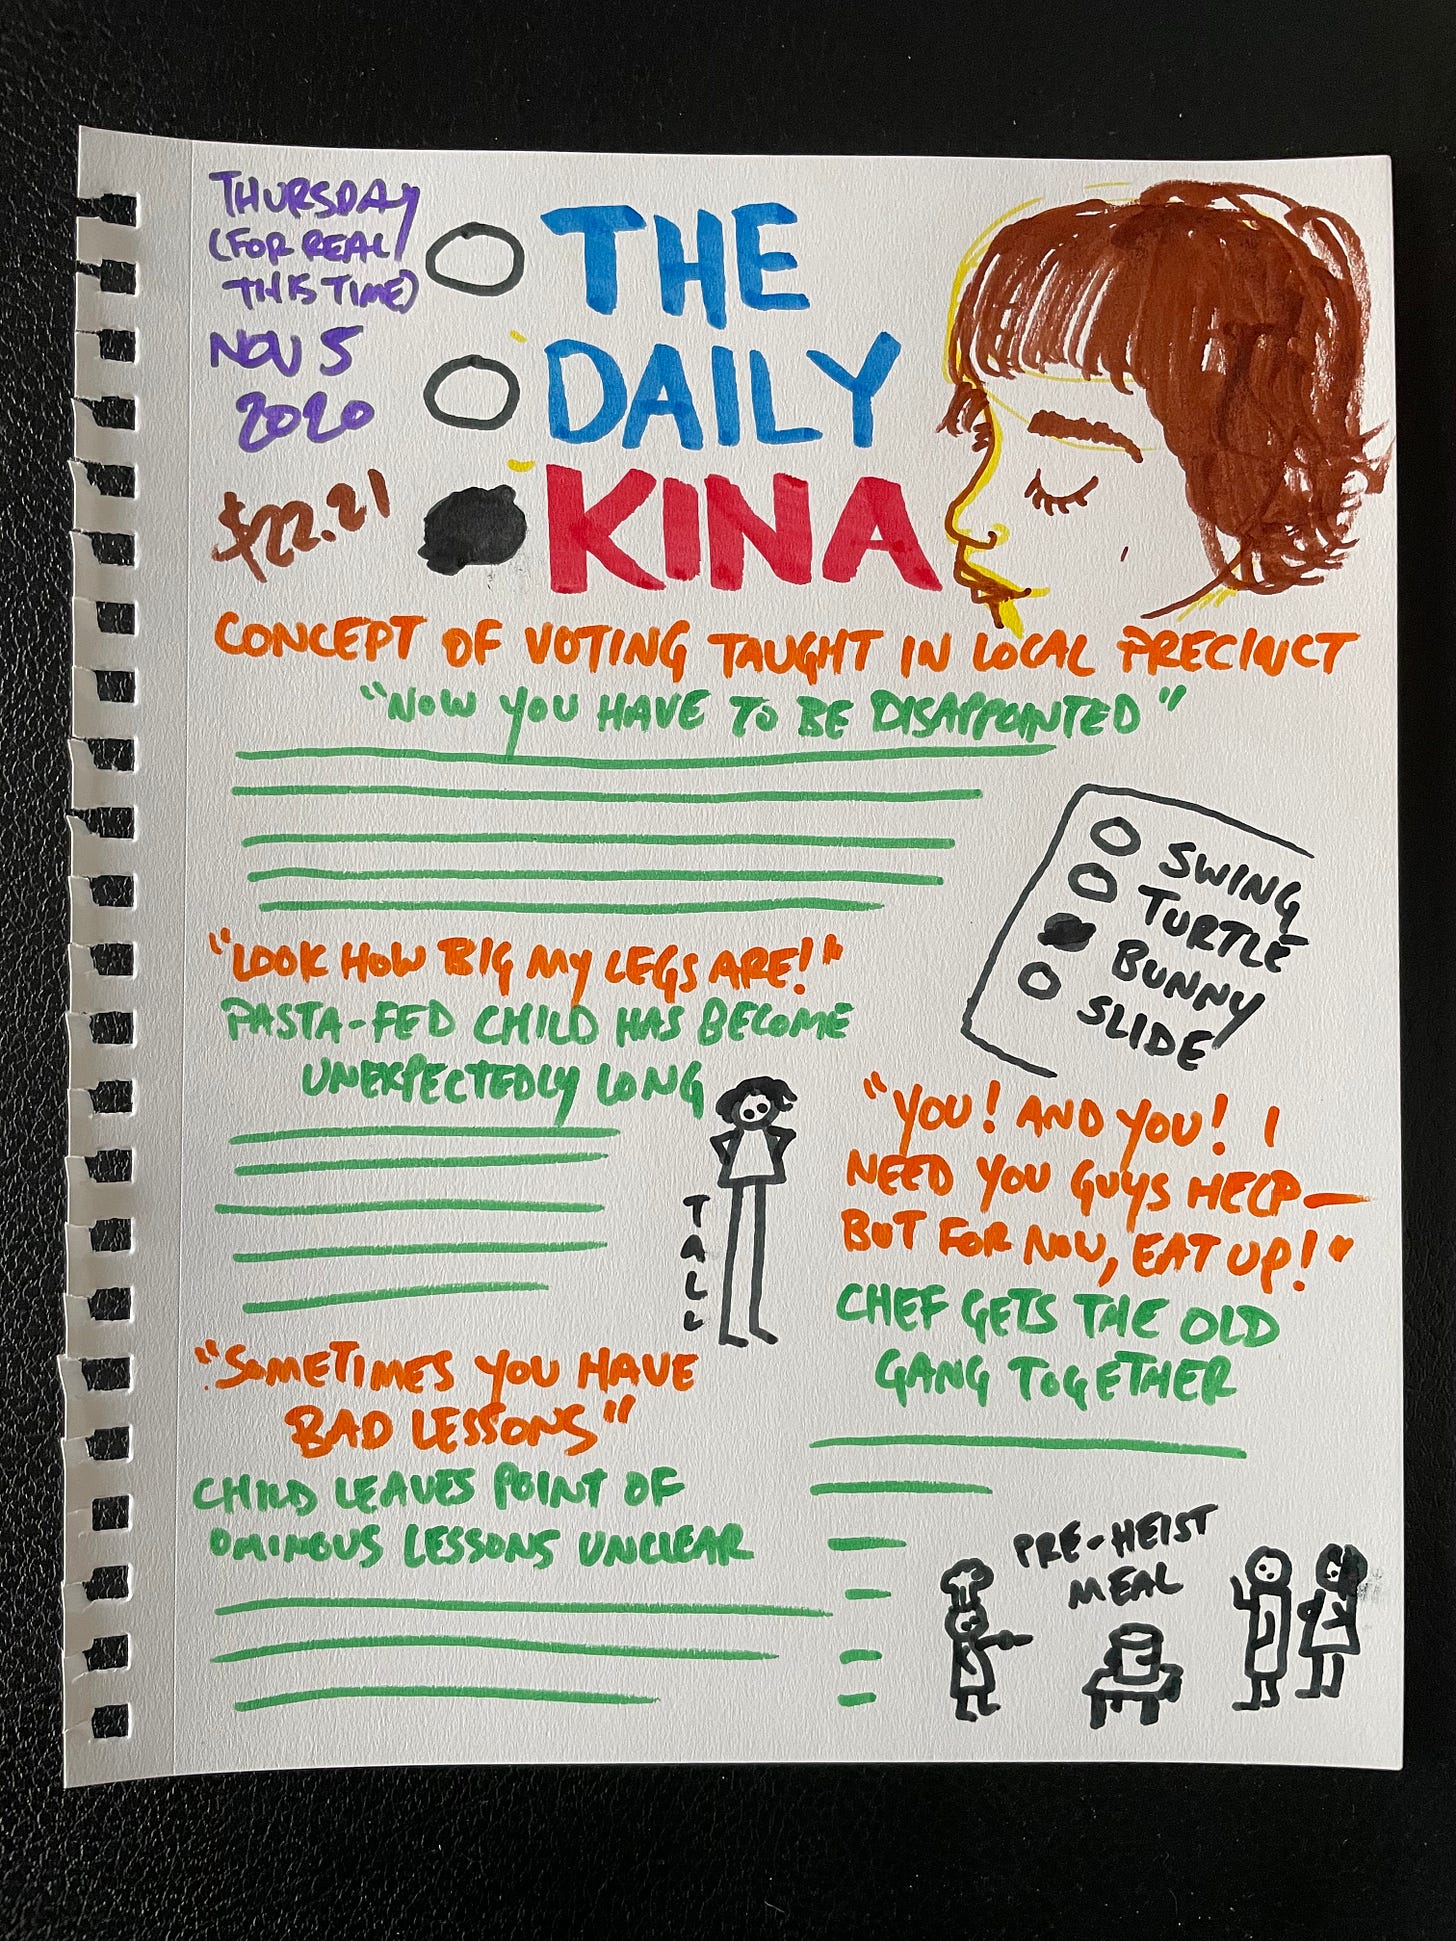 THURSDAY
(FOR REAL
THIS TIME)
NOV 5
2020
$22.21
THE
DAILY
KINA
CONCEPT OF VOTING TAUGHT IN LOCAL PRECINCT
"NOW YOU HAVE TO BE DISAPPOINTED"
SWING
TURTLE
BUNNY
SLIDE
"LOOK HOW BIG MY LEGS ARE!"
PASTA-FED CHILD HAS BECOME
UNEXPECTEDLY LONG
TALL
"YOU! AND YOU! I
NEED YOU GUYS HELP—
BUT FOR NOW, EAT UP!"
CHEF GETS THE OLD
GANG TOGETHER
PRE-HEIST
MEAL
"SOMETIMES YOU HAVE
BAD LESSONS"
CHILD LEAVES POINT OF
OMINOUS LESSONS UNCLEAR